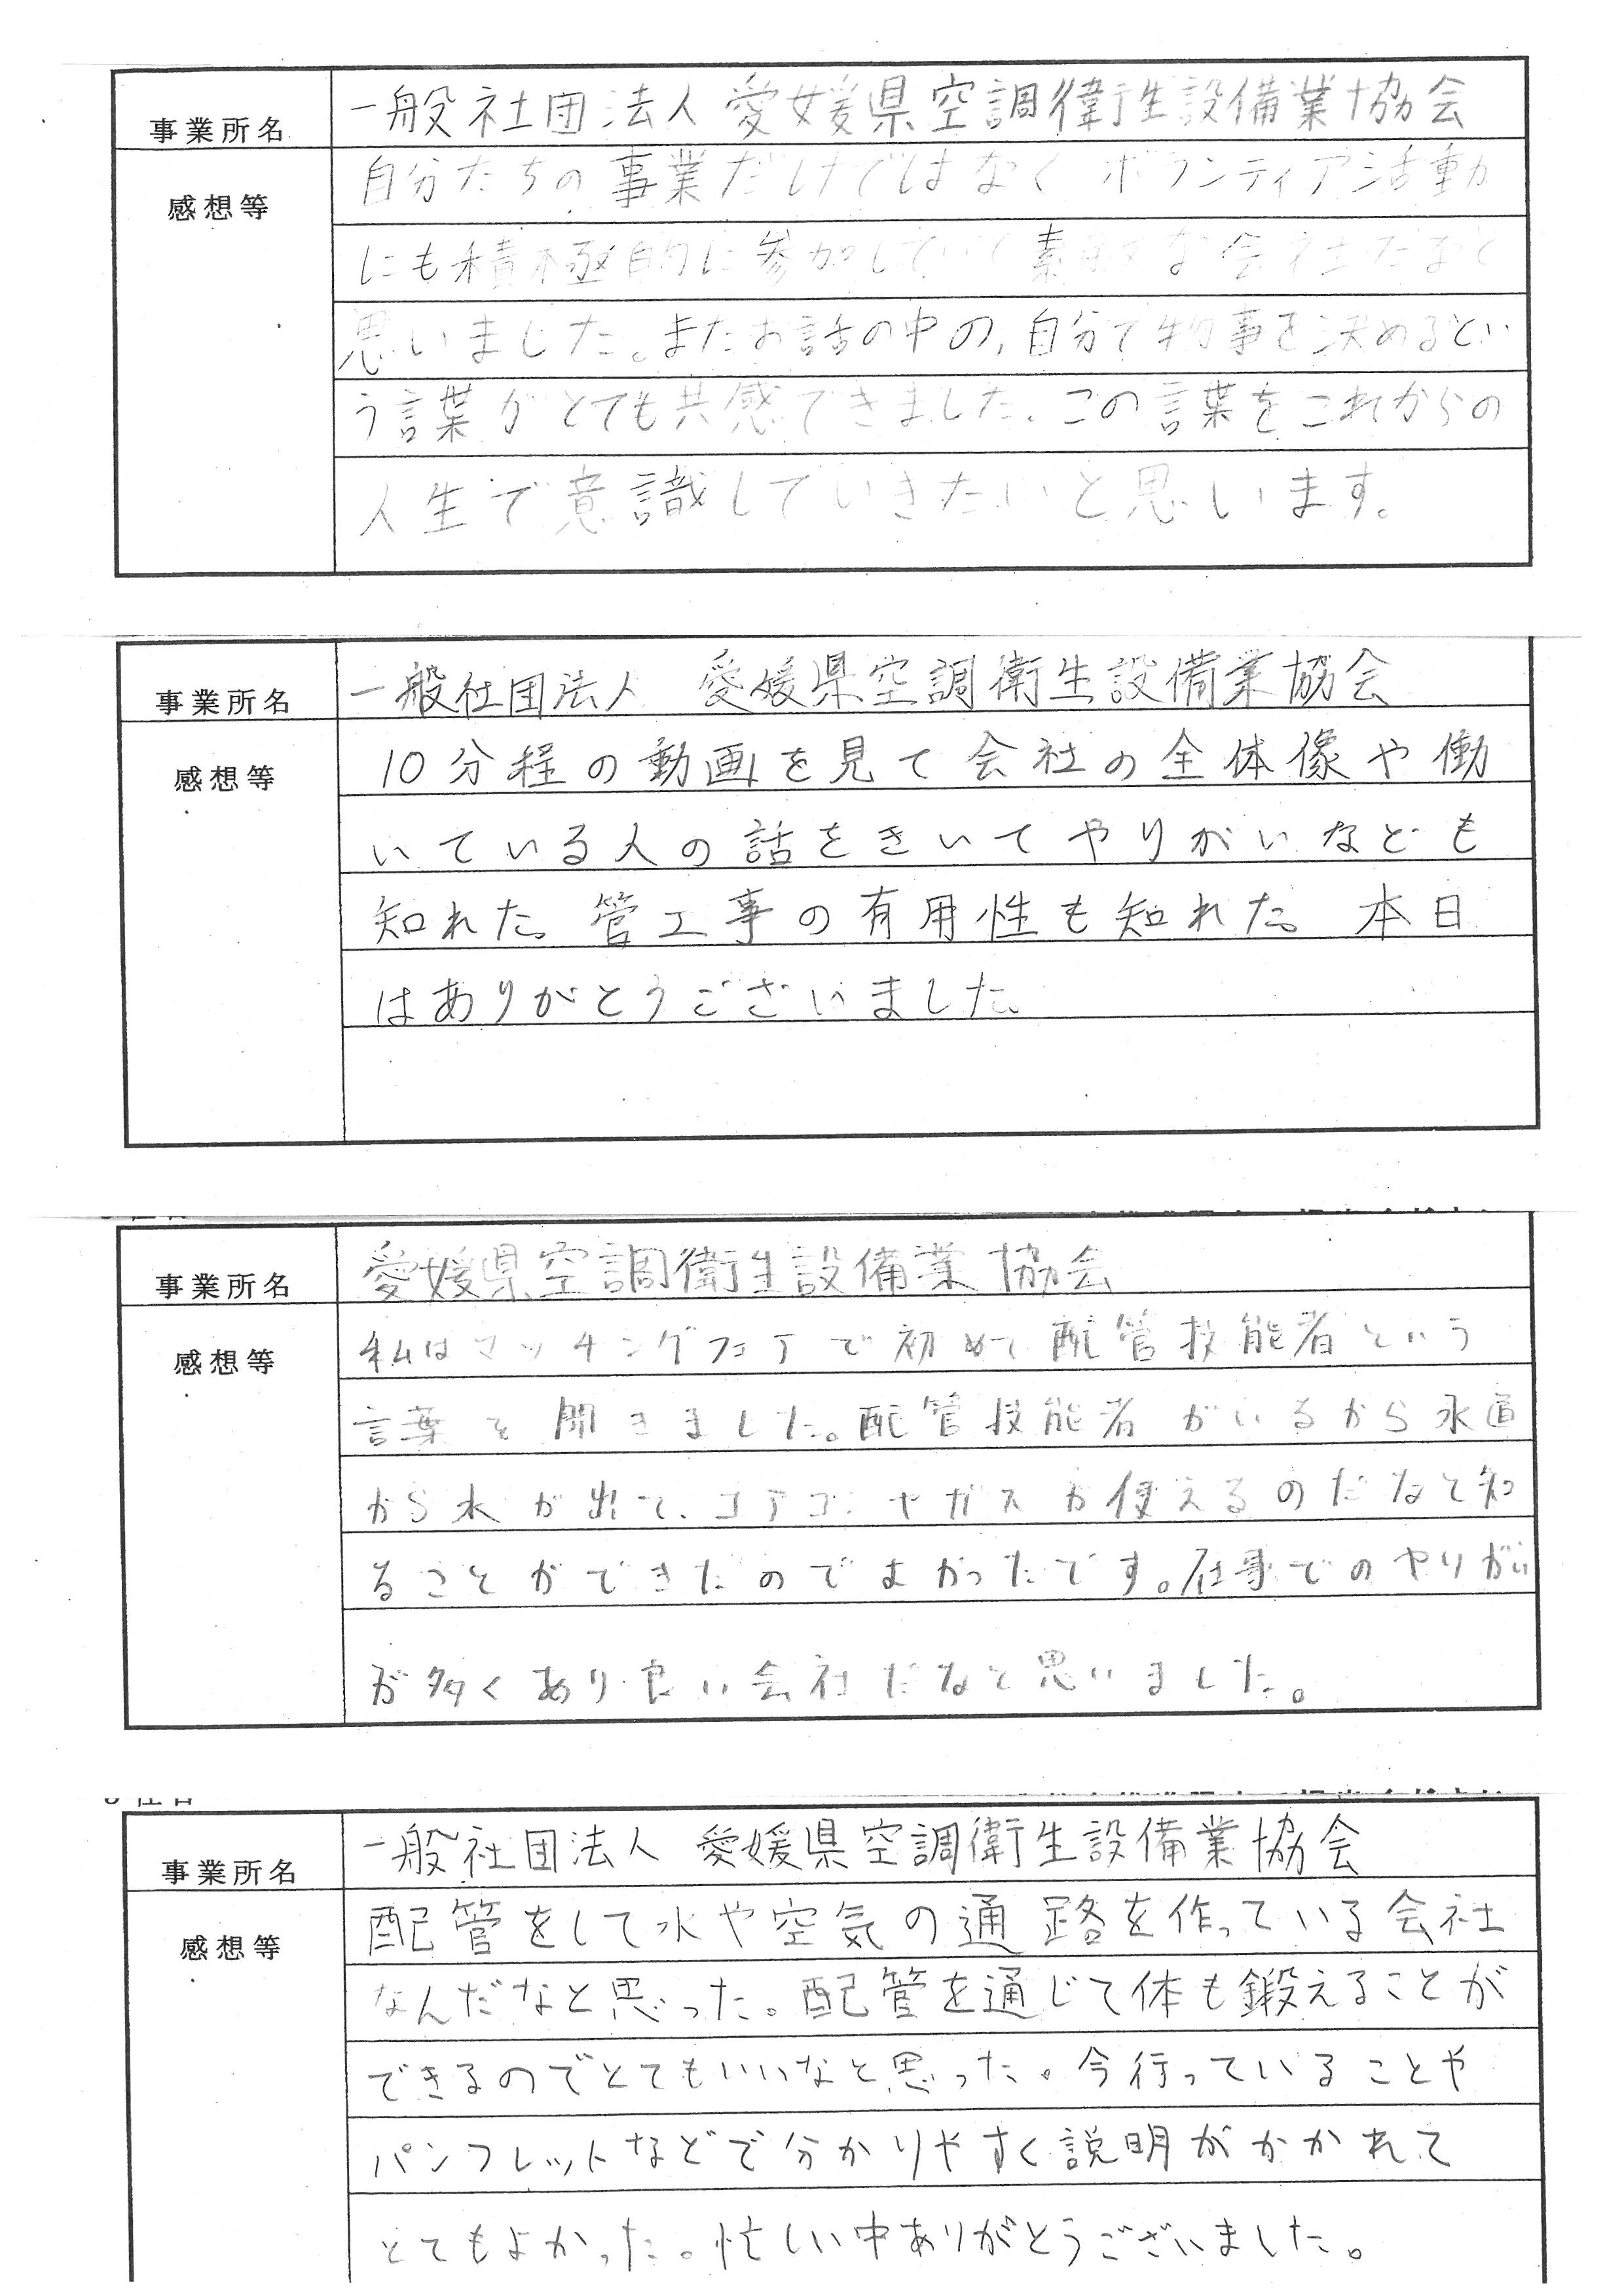 事業所名
一般社団法人 愛媛県空調衛生設備業協会
感想等
自分たちの事業だけではなく ボランティア活動
にも積極的に参加していて素敵な会社だなと
思いました。またお話の中の、自分で物事を決めるとい
う言葉がとても共感できました。この言葉をこれからの
人生で意識していきたいと思います。
事業所名
一般社団法人 愛媛県空調衛生設備業協会
感想等
10分程の動画を見て会社の全体像や働
いている人の話をきいてやりがいなども
知れた。管工事の有用性も知れた。本日
はありがとうございました。
事業所名
愛媛県空調衛生設備業協会
感想等
私はマッチングフェアで初めて配管技能者という
言葉を聞きました。配管技能者がいるから水道
から水が出て、エアコンやガスが使えるのだなと知
ることができたのでよかったです。仕事でのやりがい
が多くあり良い会社だなと思いました。
事業所名
一般社団法人 愛媛県空調衛生設備業協会
感想等
配管をして水や空気の通路を作っている会社
なんだなと思った。配管を通じて体も鍛えることが
できるのでとてもいいなと思った。今行っていることや
パンフレットなどで分かりやすく説明がかかれて
とてもよかった。忙しい中ありがとうございました。